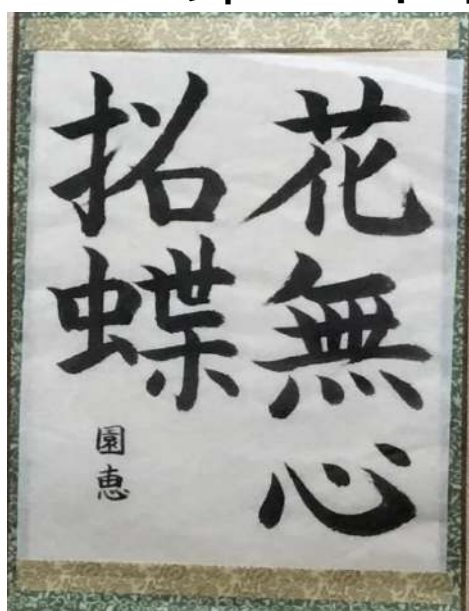 花無心
招蝶
園恵